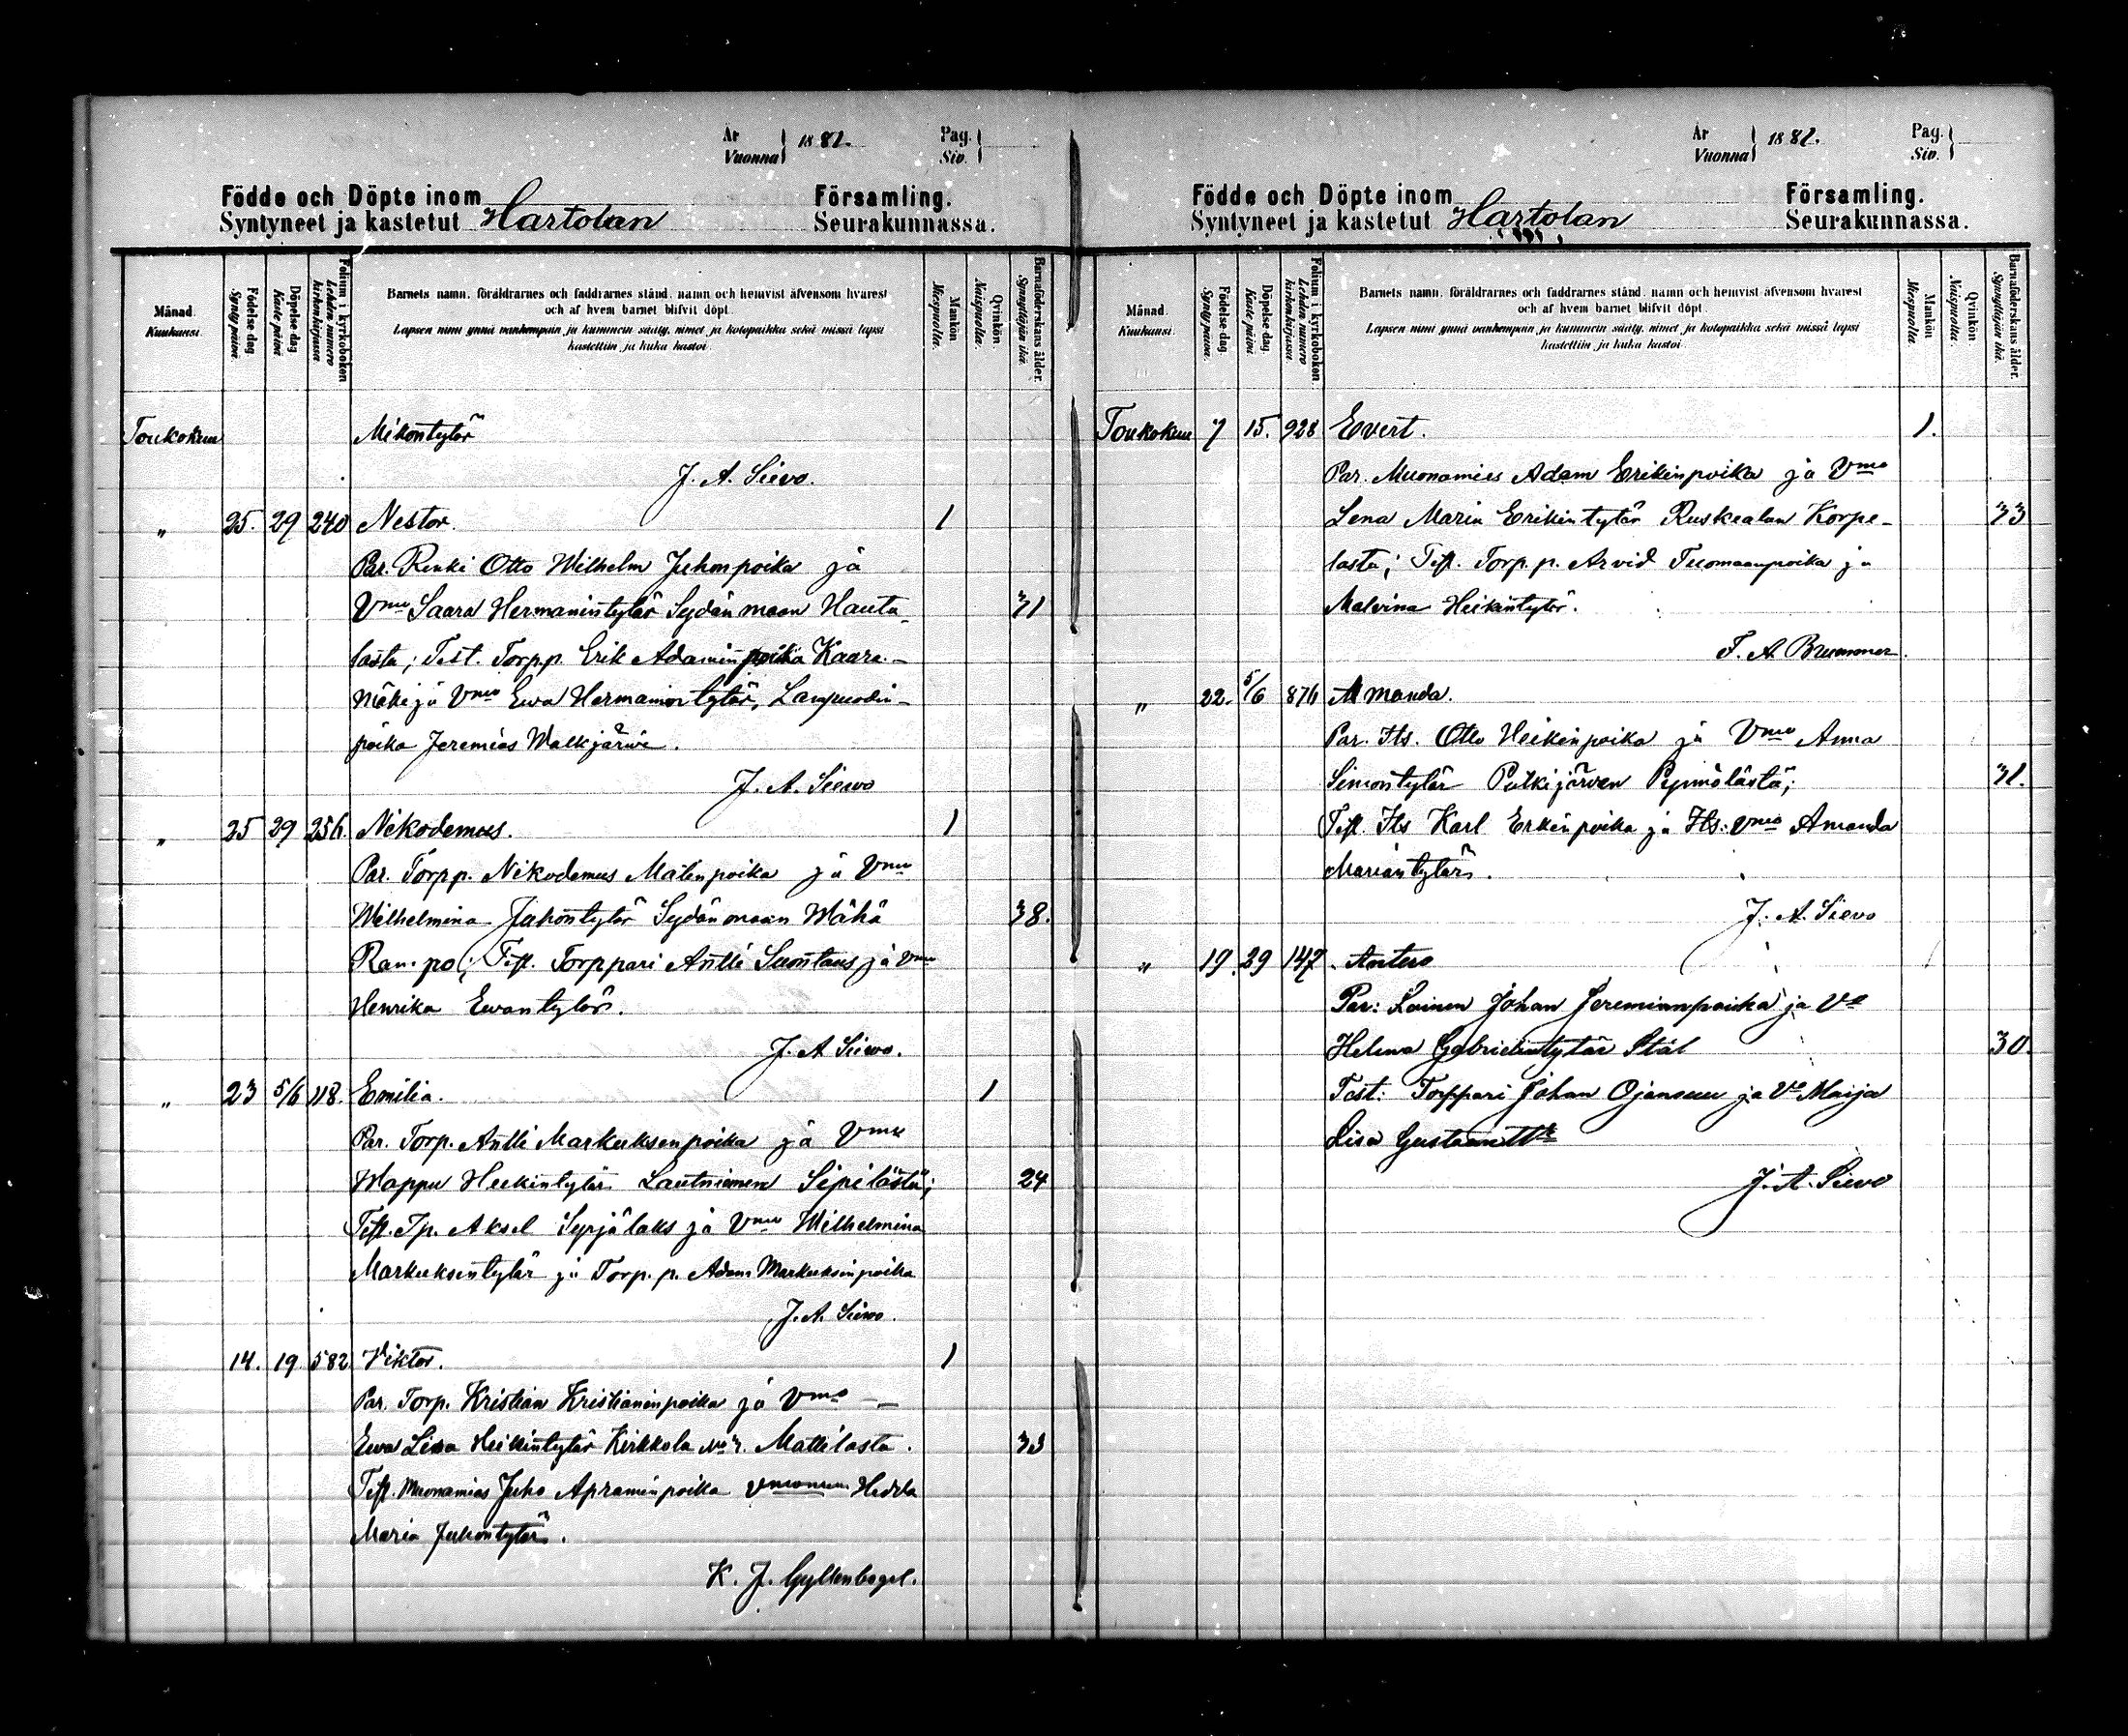 År
Vuonna
1882.
Pag.
Siv.
Födde och Döpte inom
Syntyneet ja kastetut Hartolan
Församling.
Seurakunnassa.
Månad.
Kuukausi.
Födelse dag.
Synty päivä.
Döpelse dag
Kaste päivä
Folium i kyrkoboken
Lehden numero
kirkonkirjassa
Barnets namn, föräldrarnes och faddrarnes stånd, namn och hemvist äfvensom hvarest
och af hvem barnet blifvit döpt.
Lapsen nimi ynnä vanhempain ja kummein sääty, nimet ja kotopaikka sekä missä lapsi
kastettiin ja kuka kastoi.
Mankön
Miespuolta.
Qvinkön.
Naispuolta.
Barnaföderskans ålder.
Synnyttäjän ikä.
Toukokuu Mikontytär
J. A. Sievo.
" 25. 29 240 Nestor. 1
Par. Renki Otto Wilhelm Juhonpoika ja
Vmo Saara Hermanintytär Sydänmaan Hauta- 31
lasta; Test. Torp.p. Erik Adaminpoika Kaara-
mäki ja Vmo Ewa Hermanintytär,
poika Jeremias Walkjärwi.
J. A. Siewo
" 25 29 256. Nikodemus. 1
Par. Torpp. Nikodemus Matinpoika ja Vmo
Wilhelmina Juhontytär Sydänmaan Wähä 38.
Test. Torppari Antti Suontaus ja Vmo
Henrika Ewantytär.
J. A Siewo.
" 23 5/6 118. Emilia. 1
Par. Torp. Antti Markuksenpoika ja Vmo
Wappu Heikintytär Lautniemen Sipilästä; 24
Test. Tp. Aksel Syrjälaks ja Vmo Wilhelmina
Markuksentytär ja Torp. p. Adam Markuksenpoika
J. A. Siewo.
14. 19 582 Viktor. 1
Par. Torp. Kristian Kristianinpoika ja Vmo —
Ewa Liisa Heikintytär Kirkkola Mattilasta. 33
Test. Muonamies Juho Apraminpoika Hedda
Maria Juhontytär.
K. J. Gyllenbögel.
År
Vuonna
1882.
Pag.
Siv.
Födde och Döpte inom
Syntyneet ja kastetut Hartolan
Församling.
Seurakunnassa.
Månad.
Kuukausi.
Födelse dag.
Synty päivä.
Döpelse dag
Kaste päivä
Folium i kyrkoboken.
Lehden numero
kirkonkirjassa
Barnets namn, föräldrarnes och faddrarnes stånd, namn och hemvist äfvensom hvarest
och af hvem barnet blifvit döpt.
Lapsen nimi ynnä vanhempain ja kummein sääty, nimet ja kotopaikka sekä missä lapsi
kastettiin ja kuka kastoi.
Mankön
Miespuolta.
Qvinkön
Naispuolta.
Barnaföderskans ålder.
Synnyttäjän ikä.
Toukokuu 7 15. 928 Evert. 1.
Par. Muonamies Adam Erikinpoika ja Vmo
Lena Maria Erikintytär Ruskealan Korpe- 33
lasta; Test. Torp.p. Arvid Tuomaanpoika ja
Malvina Heikintytär.
F. A. Brummer.
" 22. 5/6 876 Amanda.
Par. Its. Otto Heikinpoika ja Vmo Anna
Simontytär Putkijärven 31.
Test. Its Karl Erkinpoika ja Its: Vmo Amanda
Mariantytär.
J. A. Sievo
" 19. 29 147. Antero 1
Par: Loinen Johan Jeremianpoika ja Vo
Helena Gabrielintytär Stål 30.
Test: Torppari Johan Ojansuu ja Vo Maija
Lisa
J. A. Sievo